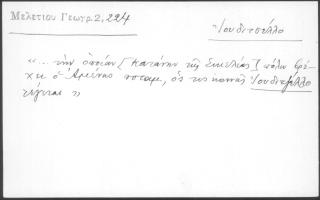 Μελετίου Γεωγρ. 2, 224
Ἰουδιτσέλλο
"... τὴν ὁποίαν [Κατάνην τῆς Σικελίας] πάλιν βρέ-
χει ὁ Ἀμένης ποταμ., ὅς τις κοινῶς Ἰουδιτζέλλο
λέγεται"